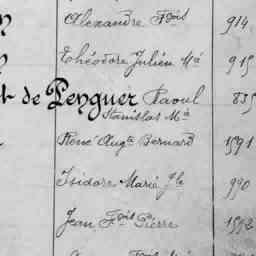 Alexandre Fçois 914
Théodore Julien Ma 915
de Penguer Raoul 835
Stanislas Ma
René Augte Bernard 1591
Isidore Marie Jh 990
Jean Fçois Pierre